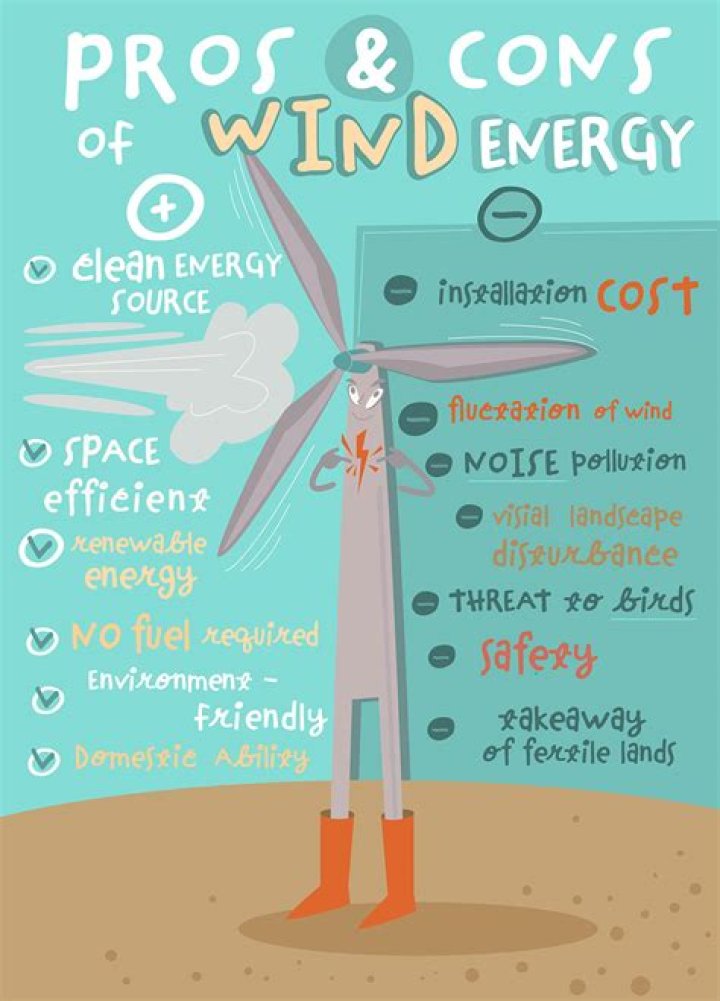 PROS & CONS
of WIND ENERGY
clean ENERGY
SOURCE
SPACE
efficient
renewable
energy
NO fuel required
Environment -
friendly
Domestic Ability
installation COST
fluctation of wind
NOISE pollution
visial landscape
disturbance
THREAT to birds
safety
takeaway
of fertile lands